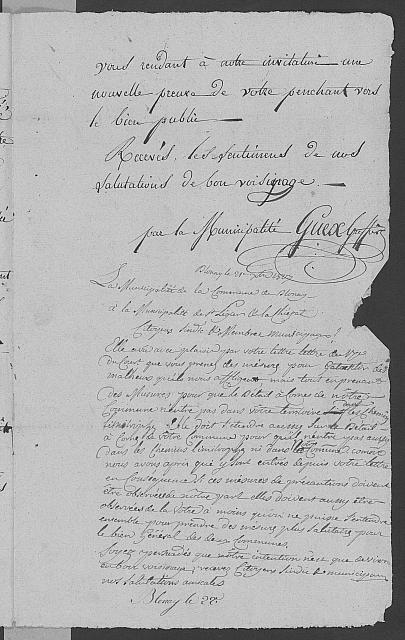 vous rendant à notre invitation une
nouvelle preuve de votre penchant vers
le bien public —
Recevés, les sentimens de nos
salutations de bon voisinage. —
par la Municipalité Gueox Greffier
Blonay le 21
La Municipalité de la Commune de Blonay
à la Municipalité de St Légier & La Chiésaz
Citoyens Sindic & Membres municipaux!
Elle voit avec plaisir par votre lettre du
Court que vous prenez des mesures pour
malheur qu'ils nous affligent mais tout en prenant
des Mesures pour que le Betail à Cornes de notre
Commune n'entre pas dans votre territoire dans les chemins
limitrophes Elle doit s'étendre aussi sur le Betail
à Corne de votre Commune pour qu'il n'entre pas aussi
dans les chemins limitrophes ni dans la Commune comme
nous avons apris que y sont entrés depuis votre lettre
en Consequence si ces mesures de précautions doivent
être observées de notre part elles doivent aussi être
observées de la votre à moins qu'on ne puisse s'entendre
ensemble pour prendre des mesures plus salutaires pour
le bien Général des deux Communes.
soyez persuadés que notre intention n'est que de vivre
en bon voisinage, recevez Citoyens Sindic & municipaux
nos salutations amicales
Blonay le 22e